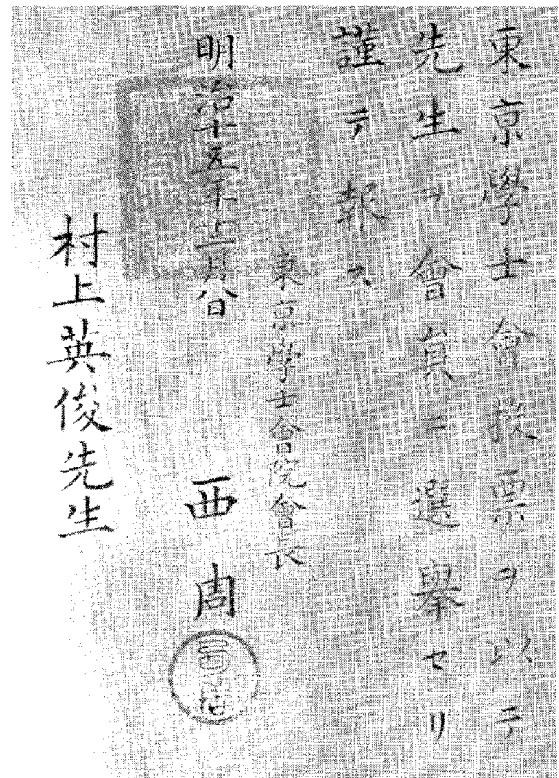 東京學士會投票ヲ以テ
先生ヲ會員ニ選擧セリ
謹テ報ス
東京學士會院會長
明治十五年 月 日 西周
村上英俊先生